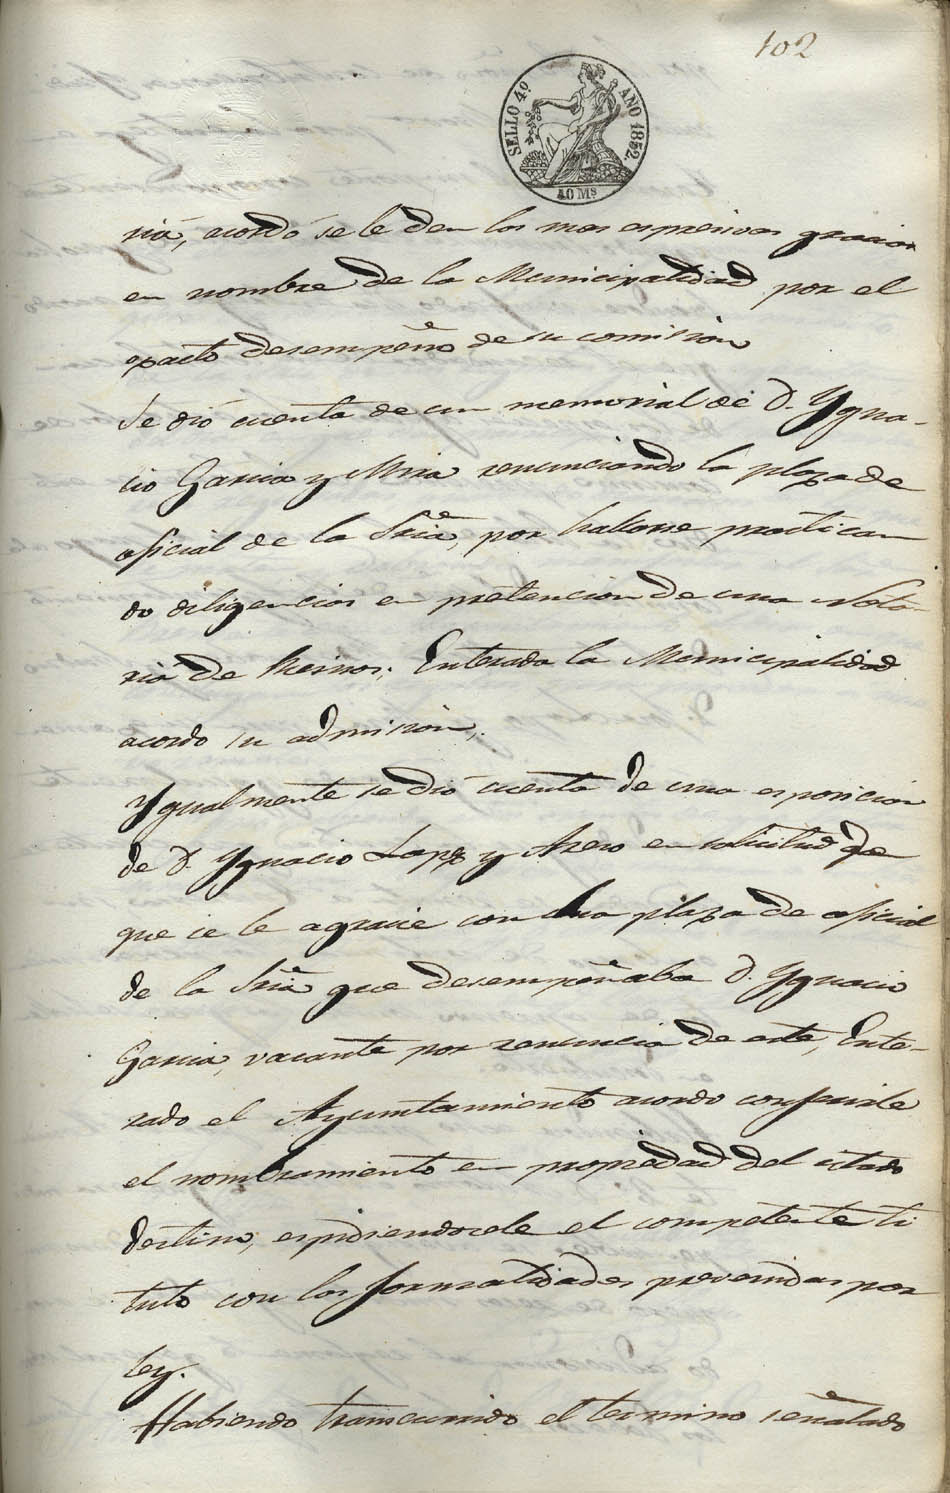 102
SELLO 4º AÑO 1852.
40 Ms
ria, acordó se le den las mas espresivas gracias
en nombre de la Municipalidad por el
exacto desempeño de su comision
Se dió cuenta de un memorial de D. Ygna-
cio Garcia y renunciando la plaza de
oficial de la Sria, por hallarse practican
do diligencias en pretencion de una Nota
ria de Reinos; Enterada la Municipalidad
acordo su admision,
Ygualmente se dió cuenta de una esposicion
de D. Ygnacio Lopez y en solicitud de
que se le agracie con la plaza de oficial
de la Sria que desempeñaba D. Ygnacio
Garcia, vacante por renuncia de este, Ente-
rado el Ayuntamiento acordo conferirle
el nombramiento en propiedad del citado
destino, espidiendosele el competente ti
tulo con las formalidades prevenidas por
ley.
Habiendo transcurrido el termino señalado